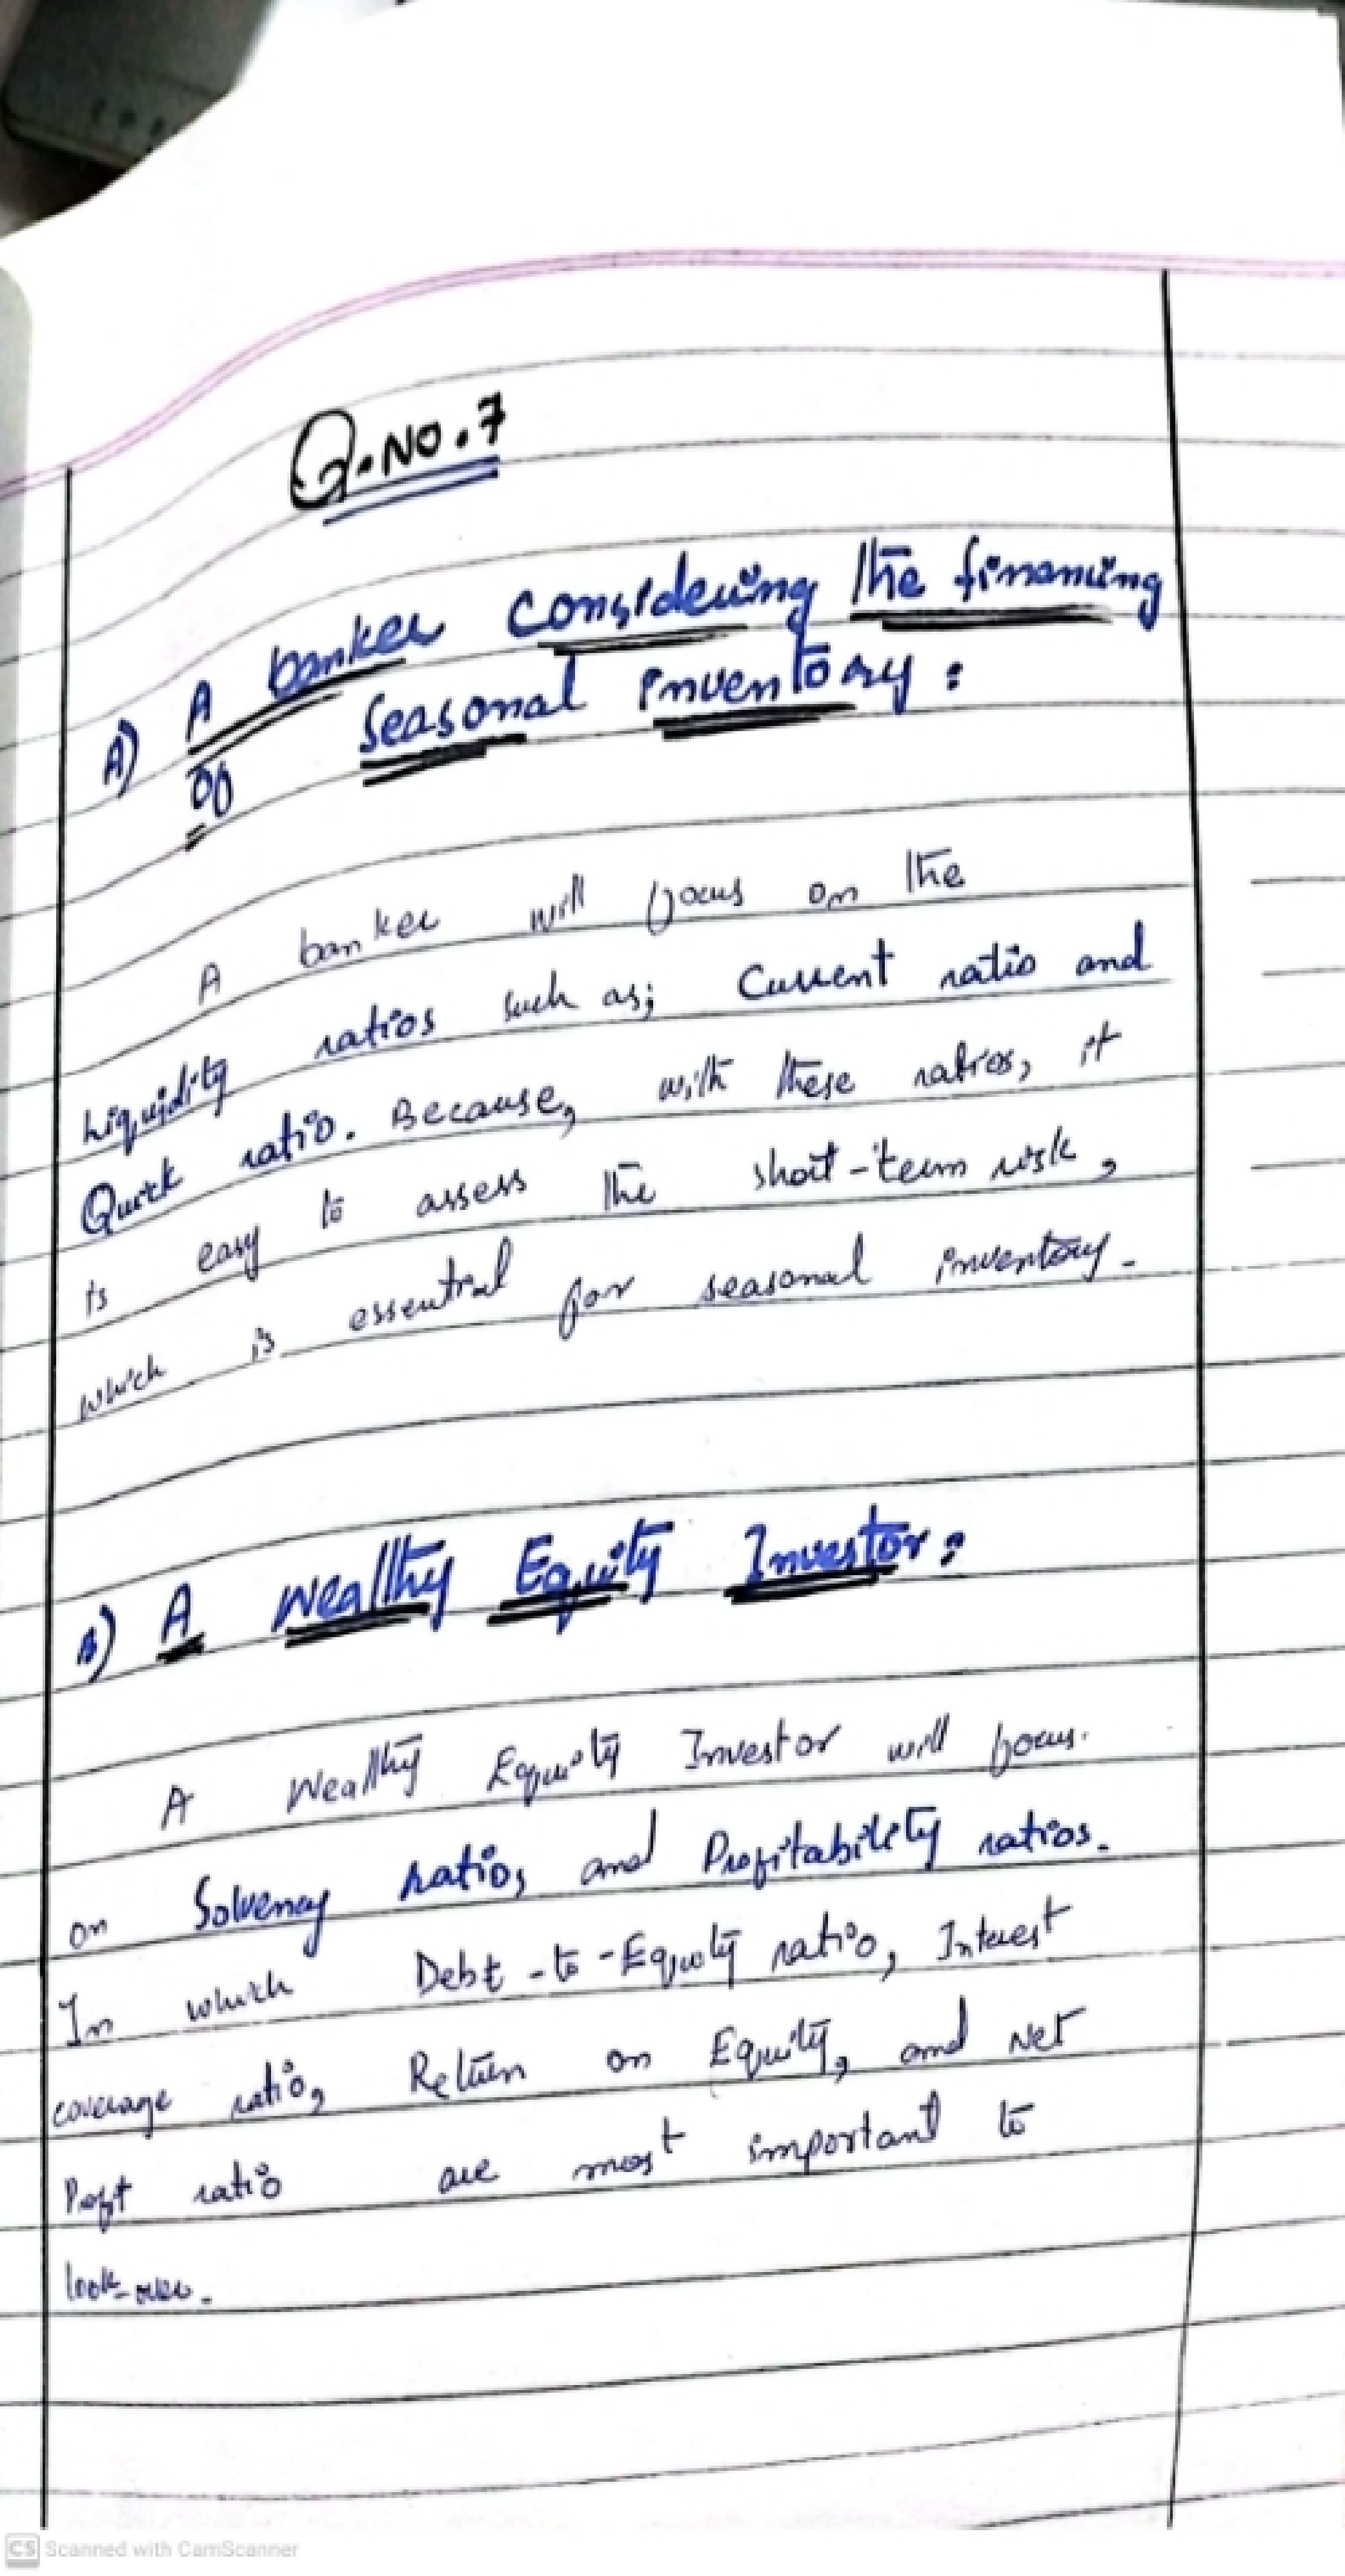 Q.No.7
A) A banker Considering the financing
of Seasonal Inventory:
A banker will focus on the
Liquidity ratios such as; Current ratio and
Quick ratio. Because, with these ratios, it
is easy to assess the short-term risk,
which is essential for seasonal inventory.
B) A Wealthy Equity Investor:
A Wealthy Equity Investor will focus.
on Solvency ratios and Profitability ratios.
In which Debt-to-Equity ratio, Interest
coverage ratio, Return on Equity, and Net
Profit ratio are most important to
look-over.
CS Scanned with CamScanner